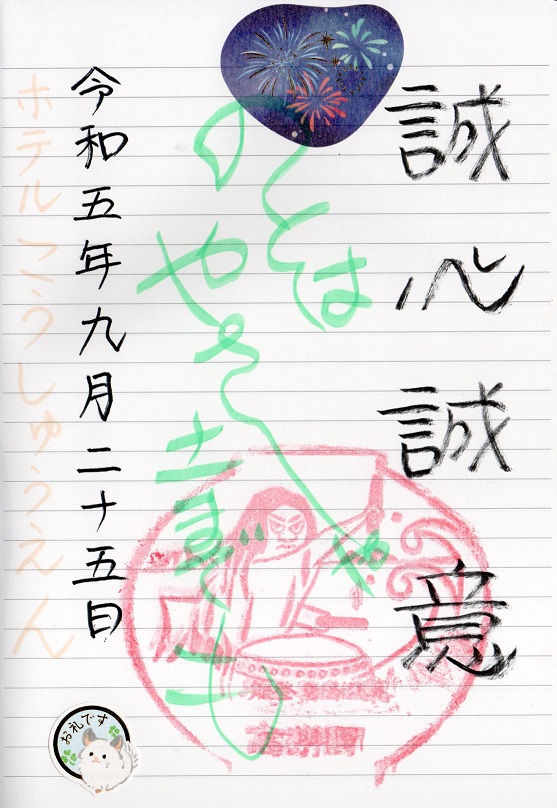 誠心誠意
のとは
やさしや
土までも
令和五年九月二十五日
ホテルこうしゅうえん
お礼です